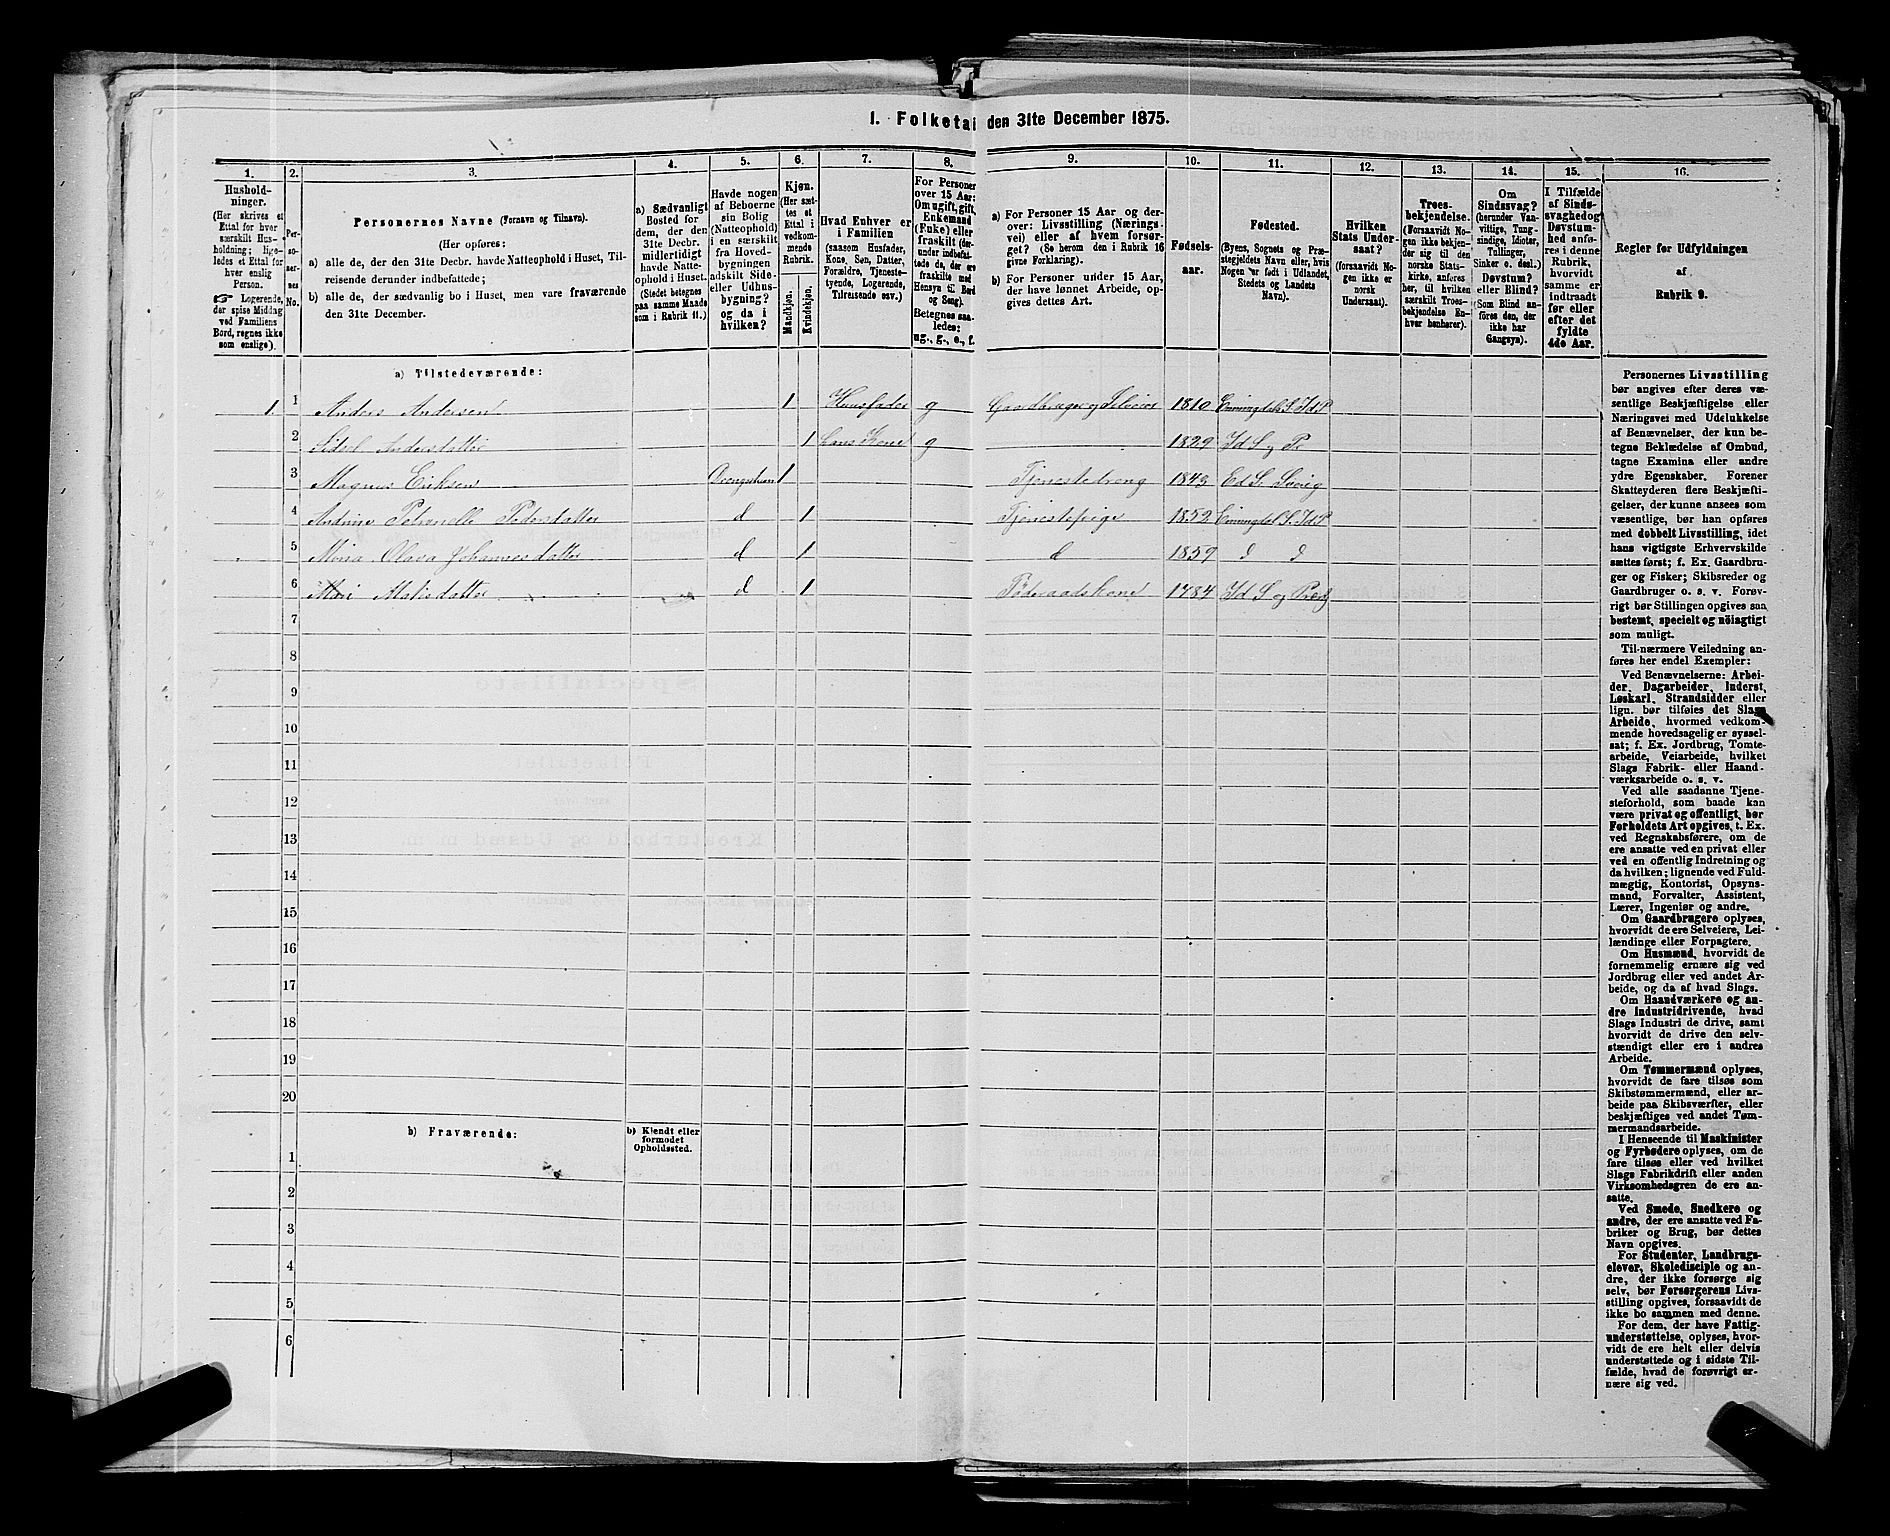 1. Folketal den 31te December 1875.
1. 2. 3. 4. 5. 6. 7. 8. 9. 10. 11. 12. 13. 14. 15. 16.
Hushold-
ninger.
(Her skrives et
Ettal for hver
særskilt Hus-
holdning; lige-
ledes et Ettal for
hver enslig
Person.
☞ Logerende,
der spise Middag
ved Familiens
Bord, regnes ikke
som enslige).
Per-
so-
ner-
nes
No.
Personernes Navne (Fornavn og Tilnavn).
(Her opføres:
a) alle de, der den 31te Decbr. havde Natteophold i Huset, Til-
reisende derunder indbefattede;
b) alle de, der sædvanlig bo i Huset, men vare fraværende
den 31te December.
a) Sædvanligt
Bosted for
dem, der den
31te Decbr.
midlertidigt
havde Natte-
ophold i Huset.
(Stedet betegnes
paa samme Maade
som i Rubrik 11.)
Havde nogen
af Beboerne
sin Bolig
(Natteophold)
i en særskilt
fra Hoved-
bygningen
adskilt Side-
eller Udhus-
bygning?
og da i
hvilken?
Kjøn.
(Her sæt-
tes et
Ettal i
vedkom-
mende
Rubrik.
Mandkjøn.
Kvindekjøn.
Hvad Enhver er
i Familien
(saasom Husfader,
Kone, Søn, Datter,
Forældre, Tjeneste-
tyende, Logerende,
Tilreisende osv.).
For Personer
over 15 Aar:
Om ugift, gift,
Enkemand
(Enke) eller
fraskilt (der-
under indbefatte
de, der ere
fraskilte med
Hensyn til Bord
og Seng).
Betegnes saa-
ledes:
ug., g., e., f.
a) For Personer 15 Aar og der-
over: Livsstilling (Nærings-
vei) eller af hvem forsør-
get? (Se herom den i Rubrik 16
givne Forklaring).
b) For Personer under 15 Aar,
der have lønnet Arbeide, op-
gives dettes Art.
Fødsels-
aar.
Fødested.
(Byens, Sognets og Præ-
stegjeldets Navn eller, hvis
Nogen er født i Udlandet,
Stedets og Landets
Navn).
Hvilken
Stats Under-
saat?
(forsaavidt No-
gen ikke er
norsk
Undersaat).
Troes-
bekjendelse.
(Forsaavidt No-
gen ikke bekjen-
der sig til den
norske Stats-
kirke, anføres
her, til hvilken
særskilt Troes-
bekjendelse En-
hver henhører).
Om
Sindssvag?
(herunder Van-
vittige, Tung-
sindige, Idioter,
Tullinger,
Sinker o. desl.)
Døvstum?
eller Blind?
(Som Blind an-
føres den, der
ikke har
Gangsyn).
I Tilfælde
af Sinds-
svaghed og
Døvstum-
hed anfø-
res i denne
Rubrik,
hvorvidt
samme er
indtraadt
før eller
efter det
fyldte
4de Aar.
Regler for Udfyldningen
af
Rubrik 9.
a) Tilstedeværende:
1 1 Anders Andersen 1 Huusfader g Gaardbruger og Selveier 1810 Enningdal S. Id P
2 Andersdatter 1 hans Kone g 1829 Id S og P
3 Magnus Eriksen 1 Tjenestedreng 1843 Ed S. Sverig
4 Andrine Petronelle Pedersdatter d 1 Tjenestepige 1852 Enningdal S. Id P
5 Maria Olava Johannesdatter d 1 d 1859 d d
6 Mari d 1 Føderaadskone 1784 Id S og Præstg
7
8
9
10
11
12
13
14
15
16
17
18
19
20
b) Fraværende:
b) Kjendt eller
formodet
Opholdssted.
1
2
3
4
5
6
Personernes Livsstilling
bør angives efter deres væ-
sentlige Beskjæftigelse eller
Næringsvei med Udelukkelse
af Benævnelser, der kun be-
tegne Beklædelse af Ombud,
tagne Examina eller andre
ydre Egenskaber. Forener
Skatteyderen flere Beskjæfti-
gelser, der kunne ansees som
væsentlige, bør han opføres
med dobbelt Livsstilling, idet
hans vigtigste Erhvervskilde
sættes først; f. Ex. Gaardbru-
ger og Fisker; Skibsreder og
Gaardbruger o. s. v. Forøv-
rigt bør Stillingen opgives saa
bestemt, specielt og nøiagtigt
som muligt.
Til nærmere Veiledning an-
føres her endel Exempler:
Ved Benævnelserne: Arbei-
der, Dagarbeider, Inderst,
Løskarl, Strandsidder eller
lign. bør tilføies det Slags
Arbeide, hvormed vedkom-
mende hovedsagelig er syssel-
sat; f. Ex. Jordbrug, Tomte-
arbeide, Veiarbeide, hvilket
Slags Fabrik- eller Haand-
værksarbeide o. s. v.
Ved alle saadanne Tjene-
steforhold, som baade kan
være privat og offentligt, bør
Forholdets Art opgives, t. Ex.
ved Regnskabsførere, om de
ere ansatte ved en privat eller
ved en offentlig Indretning og
da hvilken; lignende ved Fuld-
mægtig, Kontorist, Opsyns-
mand, Forvalter, Assistent,
Lærer, Ingeniør og andre.
Om Gaardbrugere oplyses,
hvorvidt de ere Selveiere, Lei-
lændinge eller Forpagtere.
Om Husmænd, hvorvidt de
fornemmelig ernære sig ved
Jordbrug eller ved andet Ar-
beide, og da af hvad Slags.
Om Haandværkere og an-
dre industridrivende, hvad
Slags Industri de drive, samt
hvorvidt de drive den selv-
stændigt eller ere i andres
Arbeide.
Om Tømmermænd oplyses,
hvorvidt de fare tilsøs som
Skibstømmermænd, eller ar-
beide paa Skibsværfter, eller
beskjæftiges ved andet Tøm-
mermandsarbeide.
I Henseende til Maskinister
og Fyrbødere oplyses, om de
fare tilsøs eller ved hvilket
Slags Fabrikdrift eller anden
Virksomhedsgren de ere an-
satte.
Ved Smede, Snedkere og
andre, der ere ansatte ved Fa-
briker og Brug, bør dettes
Navn opgives.
For Studenter, Landbrugs-
elever, Skoledisciple og an-
dre, der ikke forsørge sig
selv, bør Forsørgerens Livs-
stilling opgives, forsaavidt de
ikke bo sammen med denne.
For dem, der have Fattig-
understøttelse, oplyses, hvor-
vidt de ere helt eller delvis
understøttede og i sidste Til-
fælde, hvad de forøvrigt er-
nære sig ved.